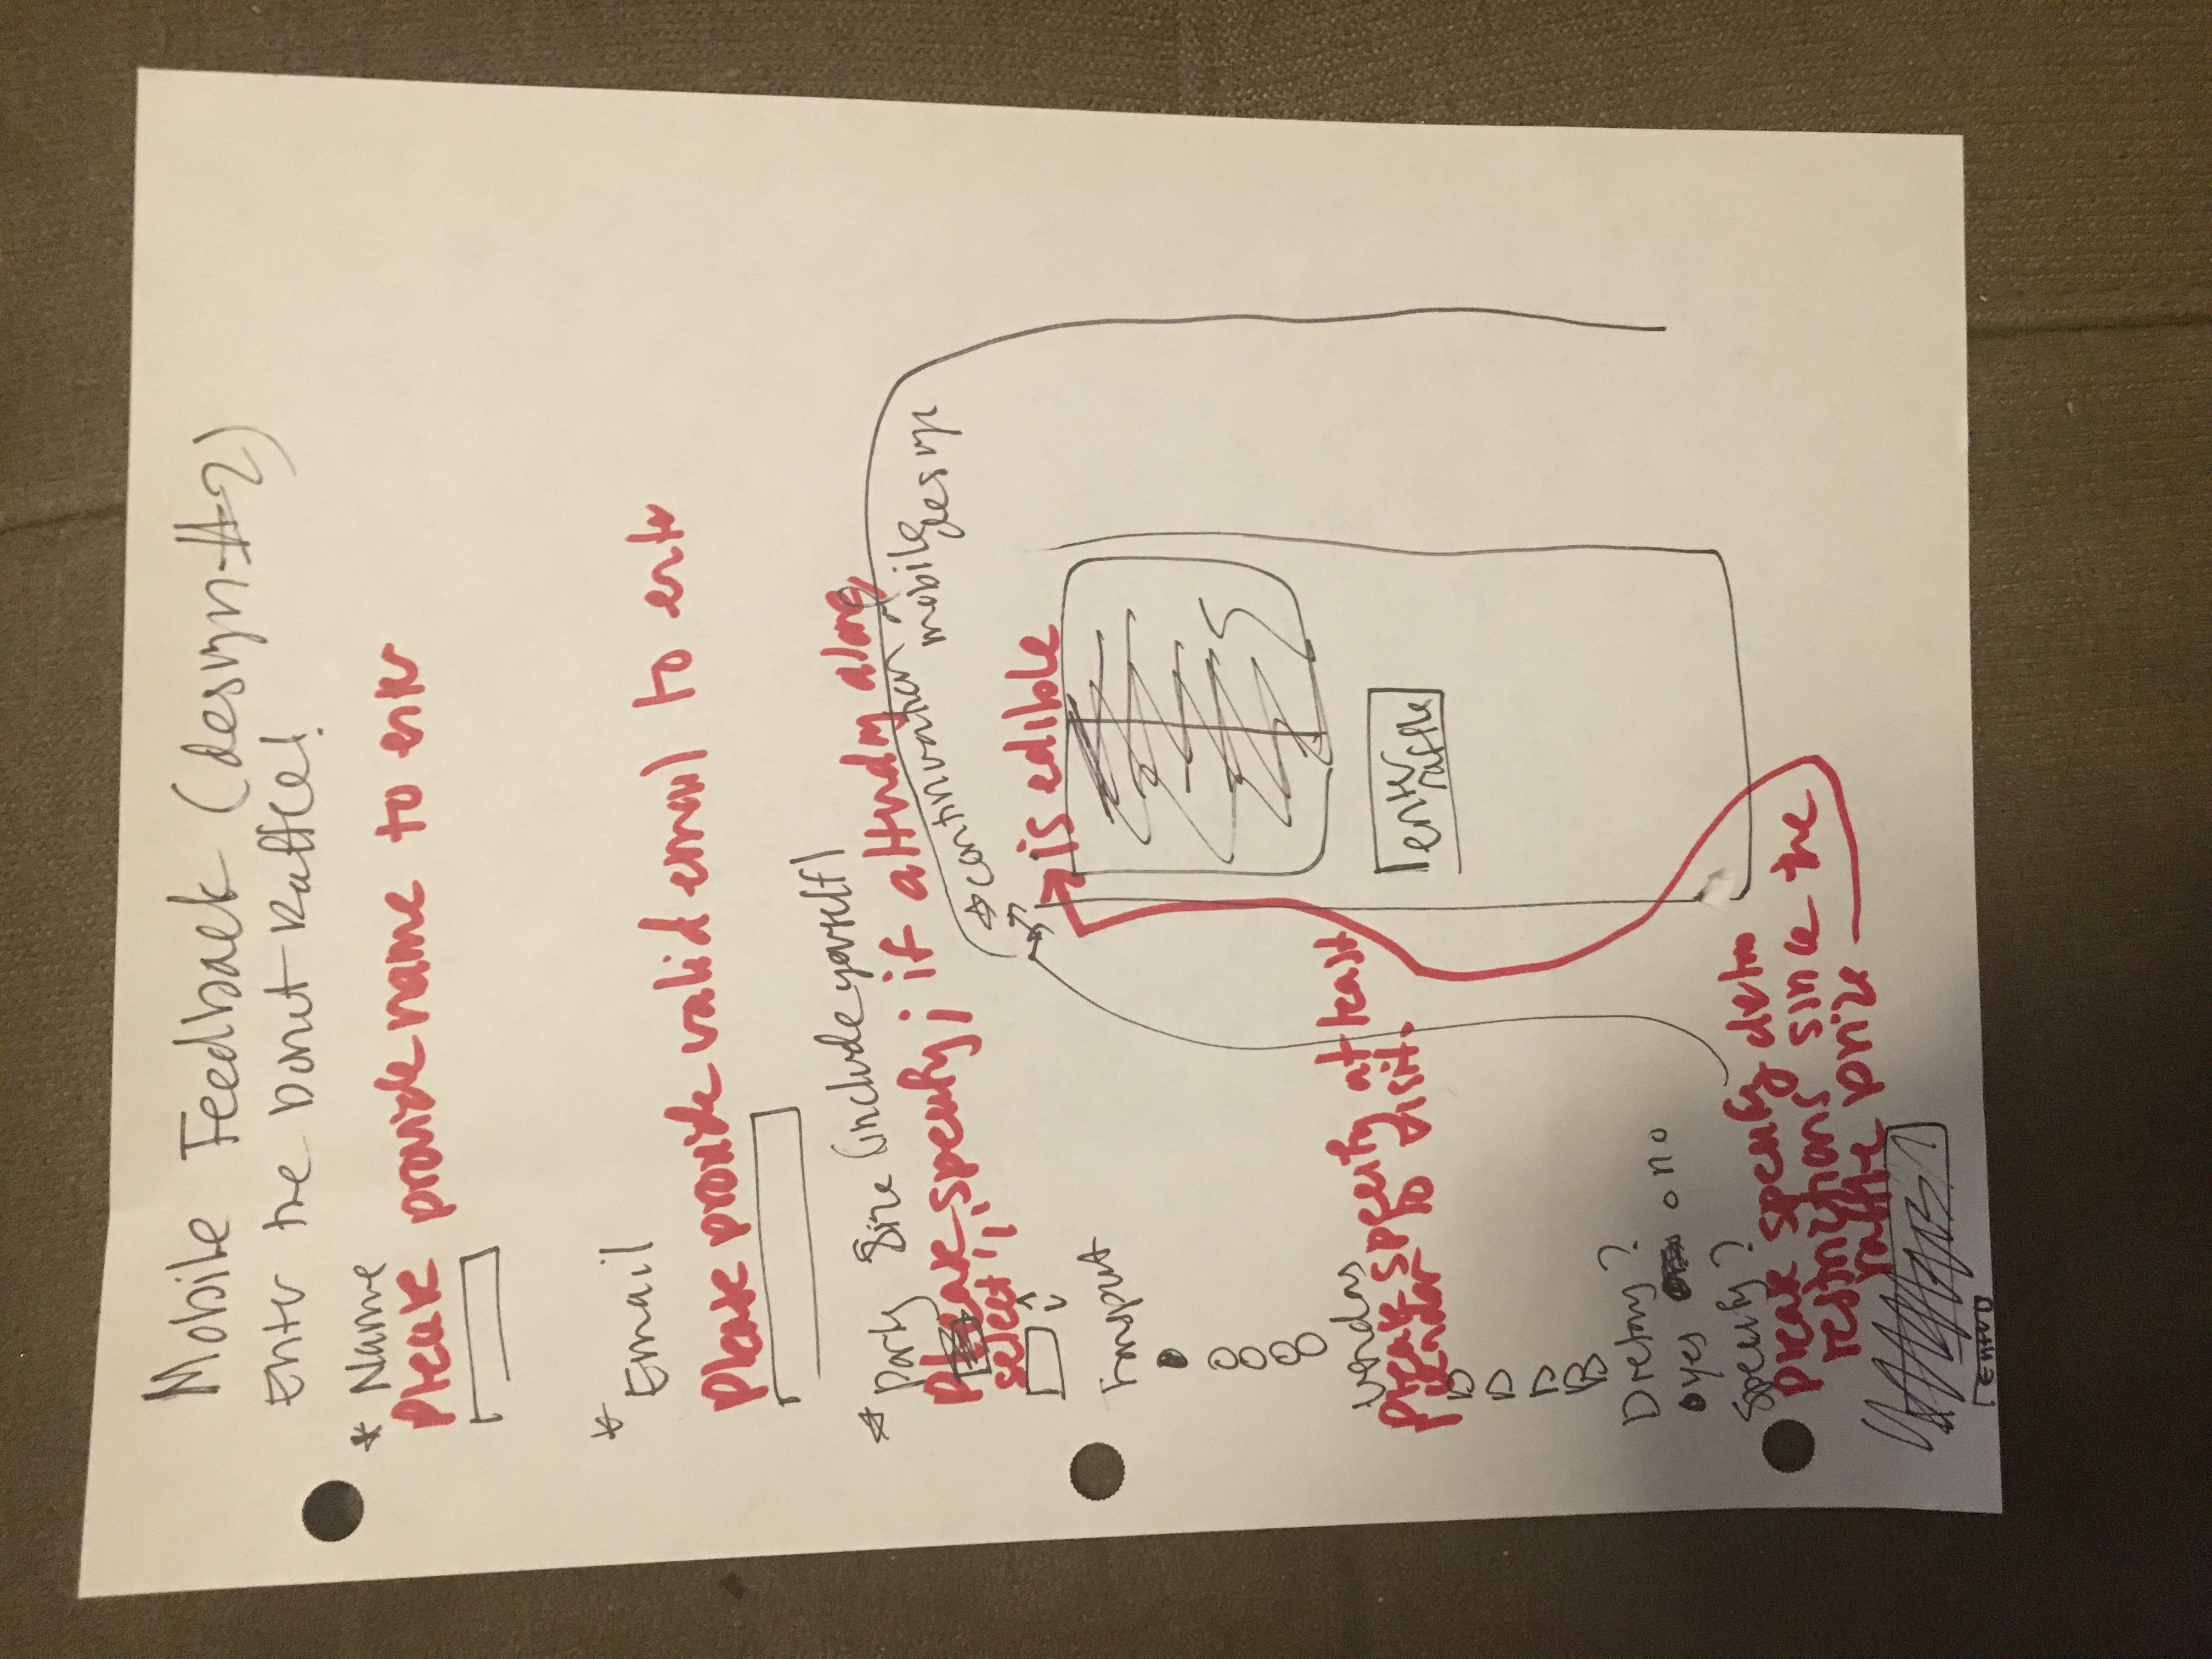 Mobile Feedback (desyn #2)
Enter the donut Raffle!
* Name
Please provide name to enter
* Email
Please provide valid email to enter
* Party Size (include yourself)
Please specify; if attending alone,
select '1'
Transport
Vendors
Please specify at least
vendor to visit.
Dietary?
yes no
Specify?
Please specify dietary
restrictions since the
raffle prize
is edible
* continuation of
mobile desyn
enter
raffle